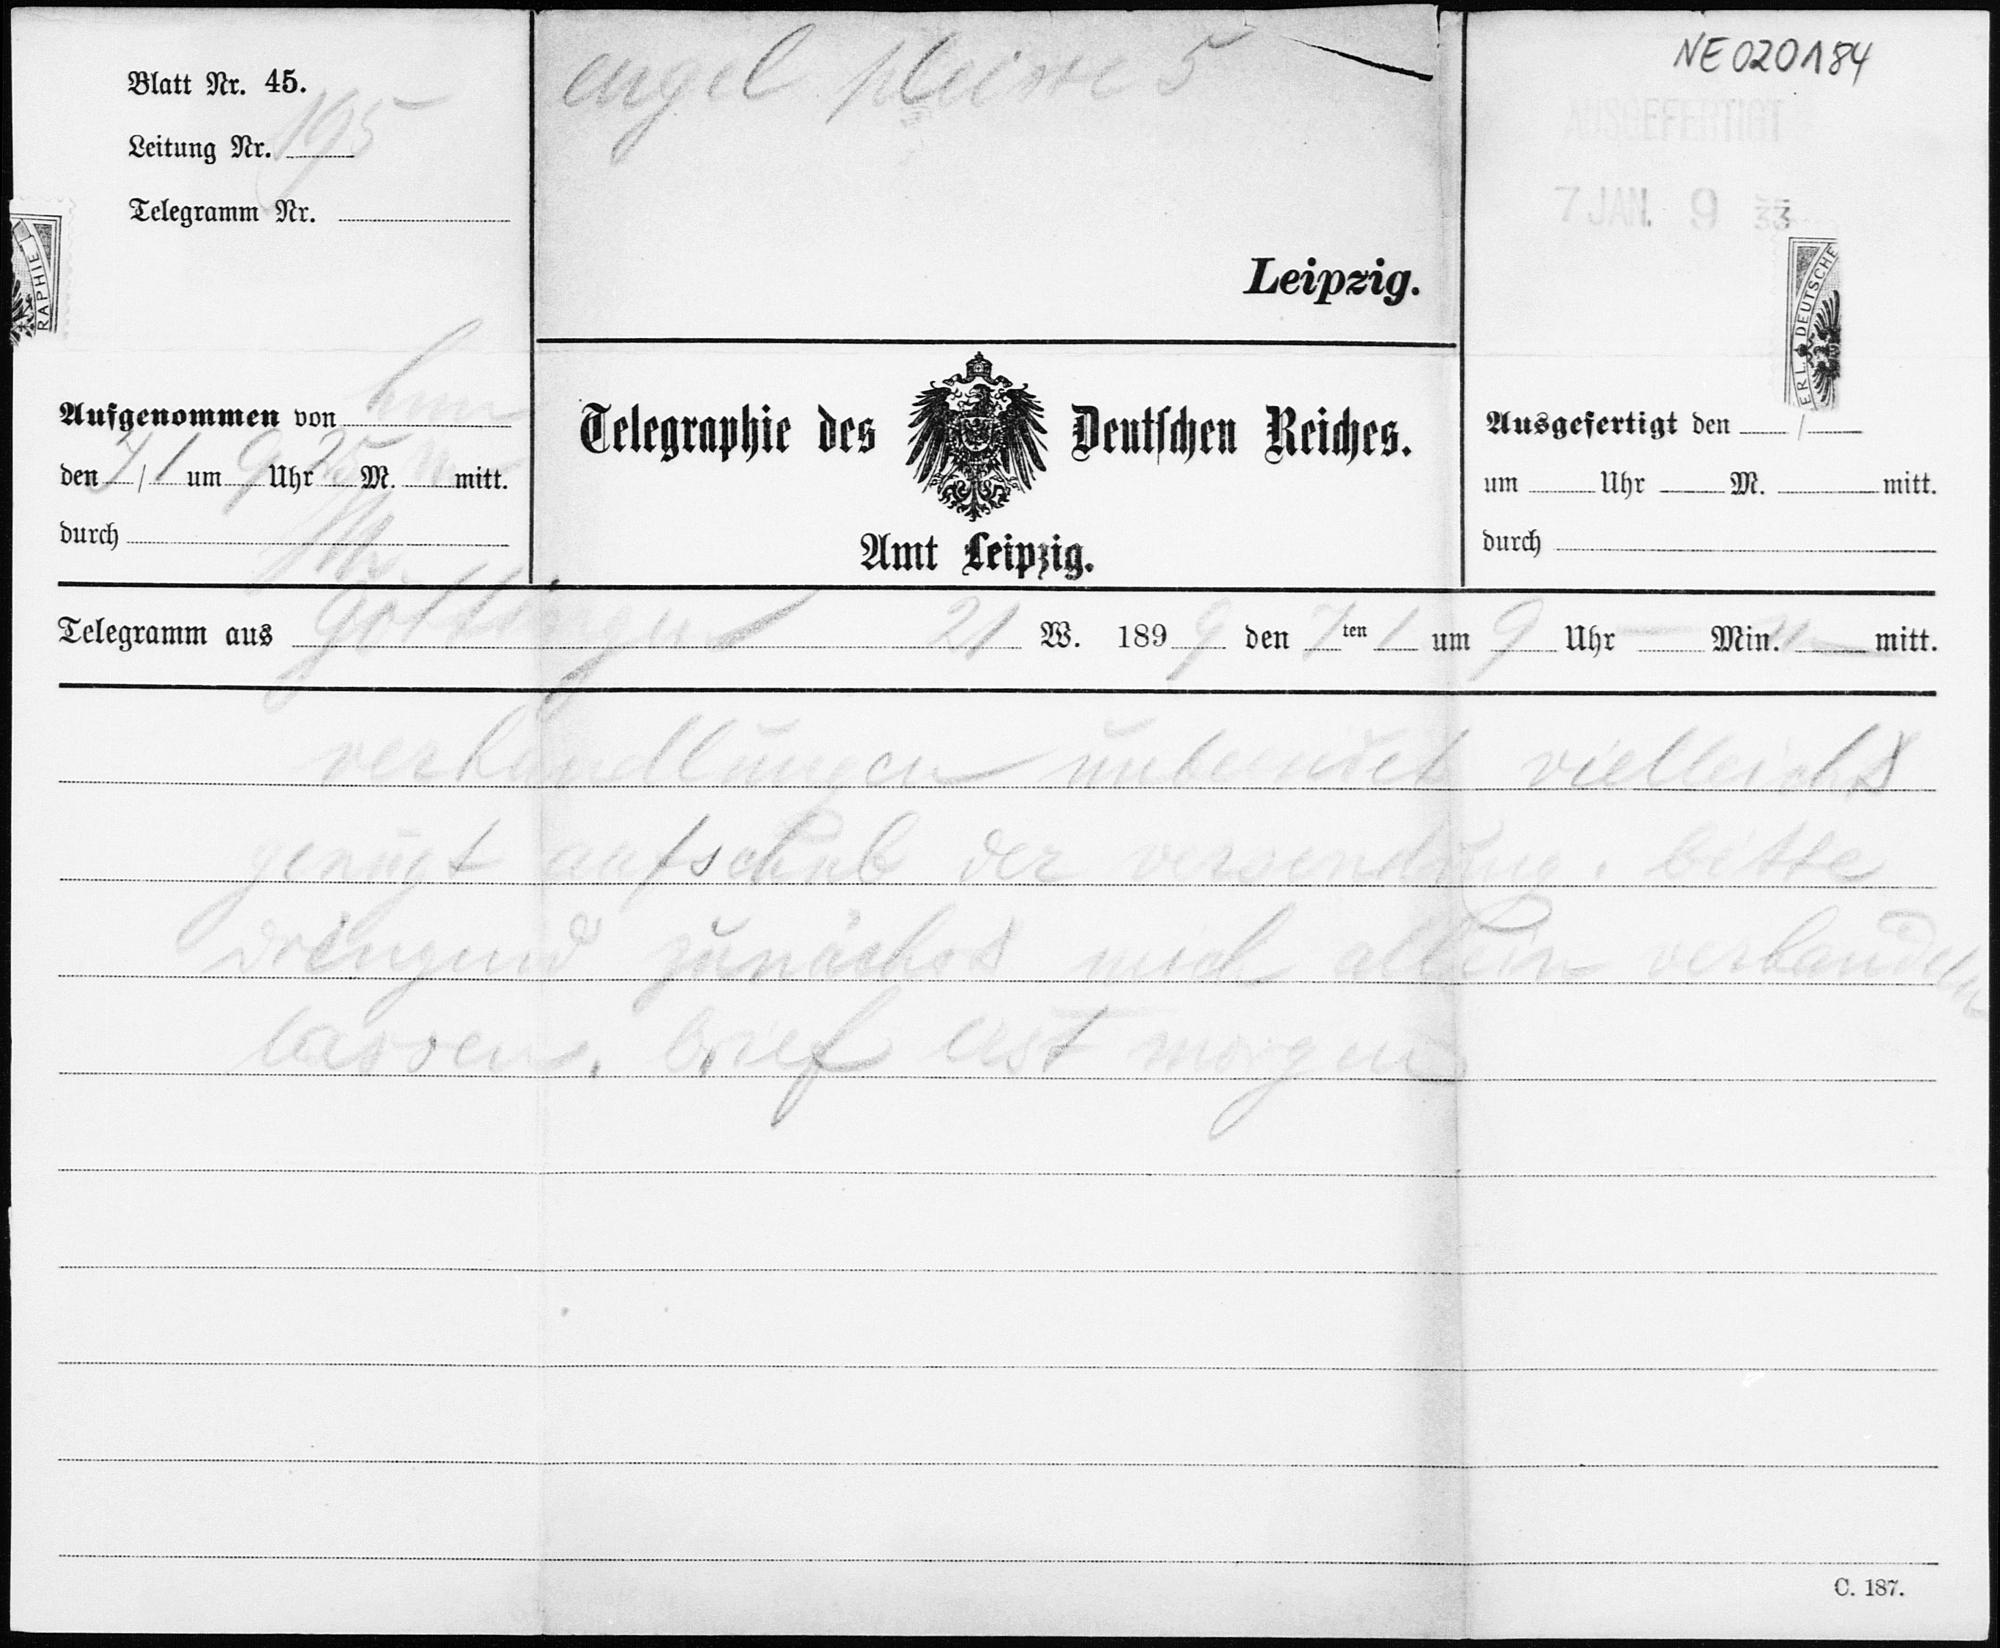 Blatt Nr. 45.
Leitung Nr. 195
Telegramm Nr.
RAPHIE
engel pleisse 5
Leipzig.
NE020184
AUSGEFERTIGT
7 JAN. 9 33
ERL. DEUTSCHE
Aufgenommen von han
den 7/1 um 9 Uhr 25 M. mitt.
durch
Telegraphie des Deutschen Reiches.
Amt Leipzig.
Ausgefertigt den /
um Uhr M. mitt.
durch
Telegramm aus göttingen 21 W. 1899 den 7ten 1 um 9 Uhr — Min. mitt.
verhandlungen unbeendet vielleicht
genügt aufschub der versendung. bitte
dringend zunächst mich allein verhandeln
lassen. brief erst morgen
C. 187.